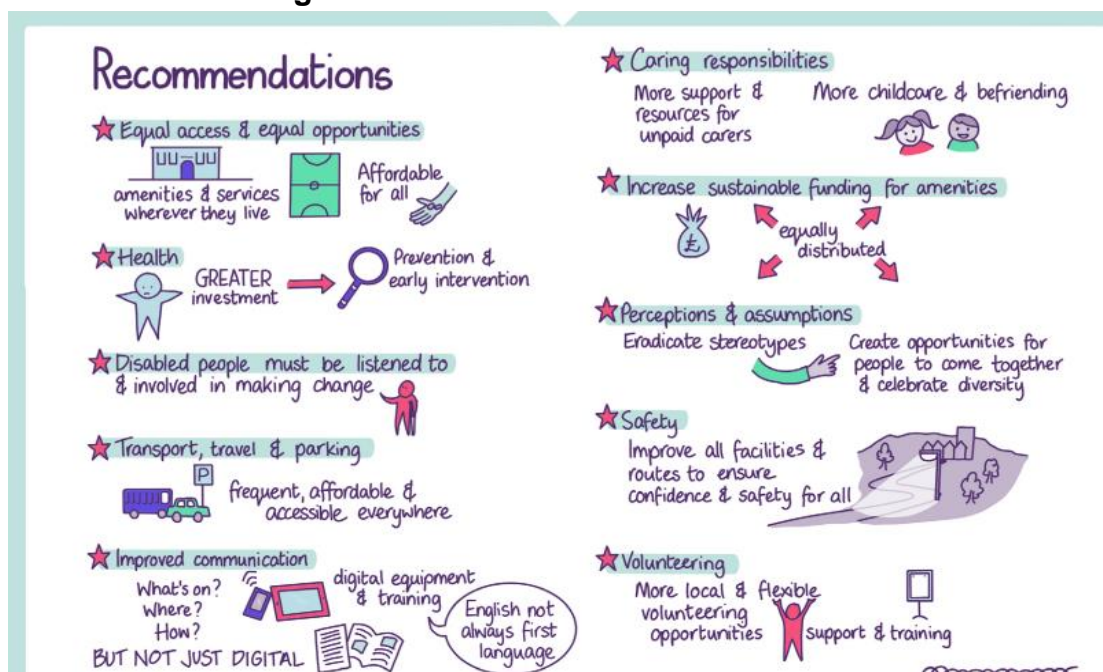 Recommendations
Equal access & equal opportunities
amenities & services
wherever they live
Affordable
for all
Health
GREATER
investment
Prevention &
early intervention
Disabled people must be listened to
& involved in making change
Transport, travel & parking
P
frequent, affordable &
accessible everywhere
Improved communication
What's on?
Where?
How?
BUT NOT JUST DIGITAL
digital equipment
& training
English not
always first
language
Caring responsibilities
More support &
resources for
unpaid carers
More childcare & befriending
Increase sustainable funding for amenities
£
equally
distributed
Perceptions & assumptions
Eradicate stereotypes
Create opportunities for
people to come together
& celebrate diversity
Safety
Improve all facilities &
routes to ensure
confidence & safety for all
Volunteering
More local & flexible
volunteering
opportunities
support & training